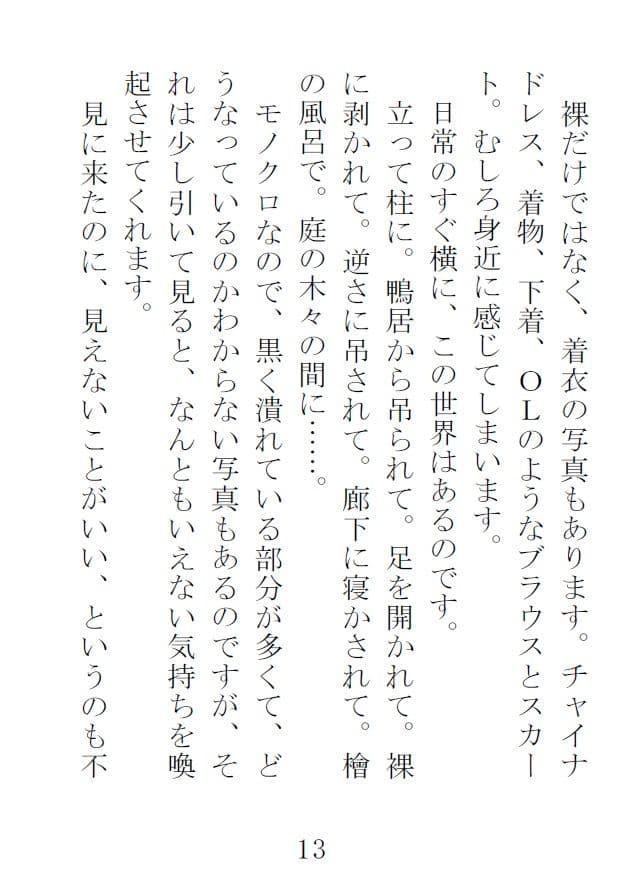 裸だけではなく、着衣の写真もあります。チャイナ
ドレス、着物、下着、ＯＬのようなブラウスとスカー
ト。むしろ身近に感じてしまいます。
日常のすぐ横に、この世界はあるのです。
立って柱に。鴨居から吊られて。足を開かれて。裸
に剥かれて。逆さに吊されて。廊下に寝かされて。檜
の風呂で。庭の木々の間に……。
モノクロなので、黒く潰れている部分が多くて、ど
うなっているのかわからない写真もあるのですが、そ
れは少し引いて見ると、なんともいえない気持ちを喚
起させてくれます。
見に来たのに、見えないことがいい、というのも不
13